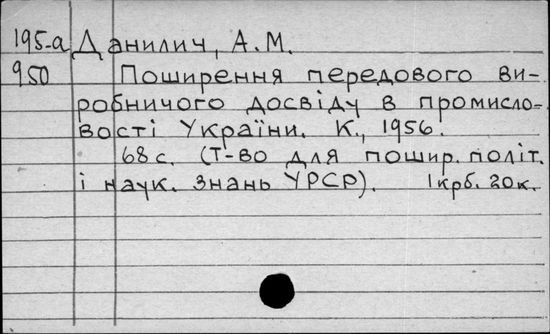 195-а Данилич, А.М.
950 Поширення передового ви-
робничого досвіду в промисло-
вості України. К., 1956.
68 с. (Т-во для пошир. політ.
і наук. знань УРСР). 1 крб. 20 к.